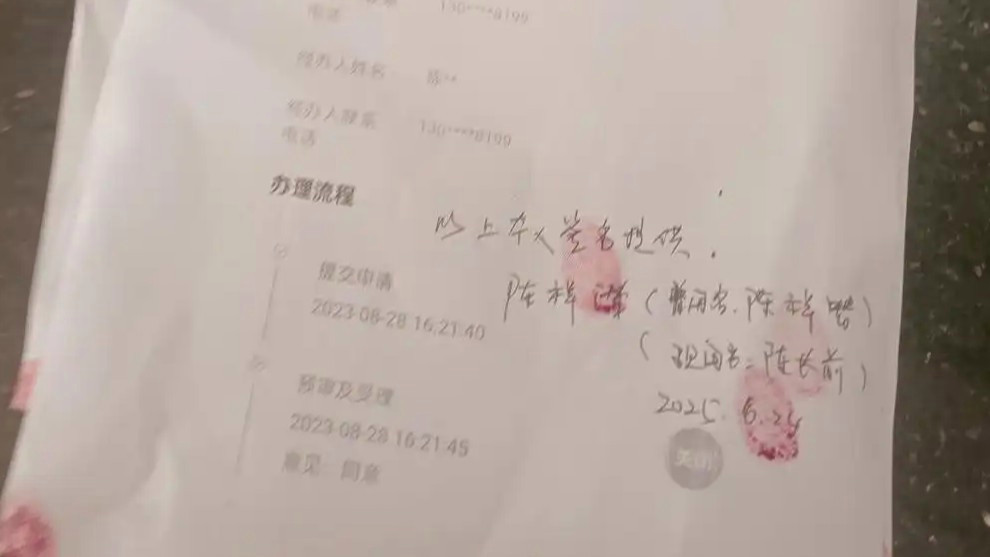 130****8199
电话
经办人姓名 陈**
经办人联系 130****8199
电话
办理流程
以上本人签名提供.
陈祥
(曾用名.陈祥
(现用名:陈长前)
2025.6.24
提交申请
2023-08-28 16:21:40
预审及受理
2023-08-28 16:21:45
意见 同意
关闭